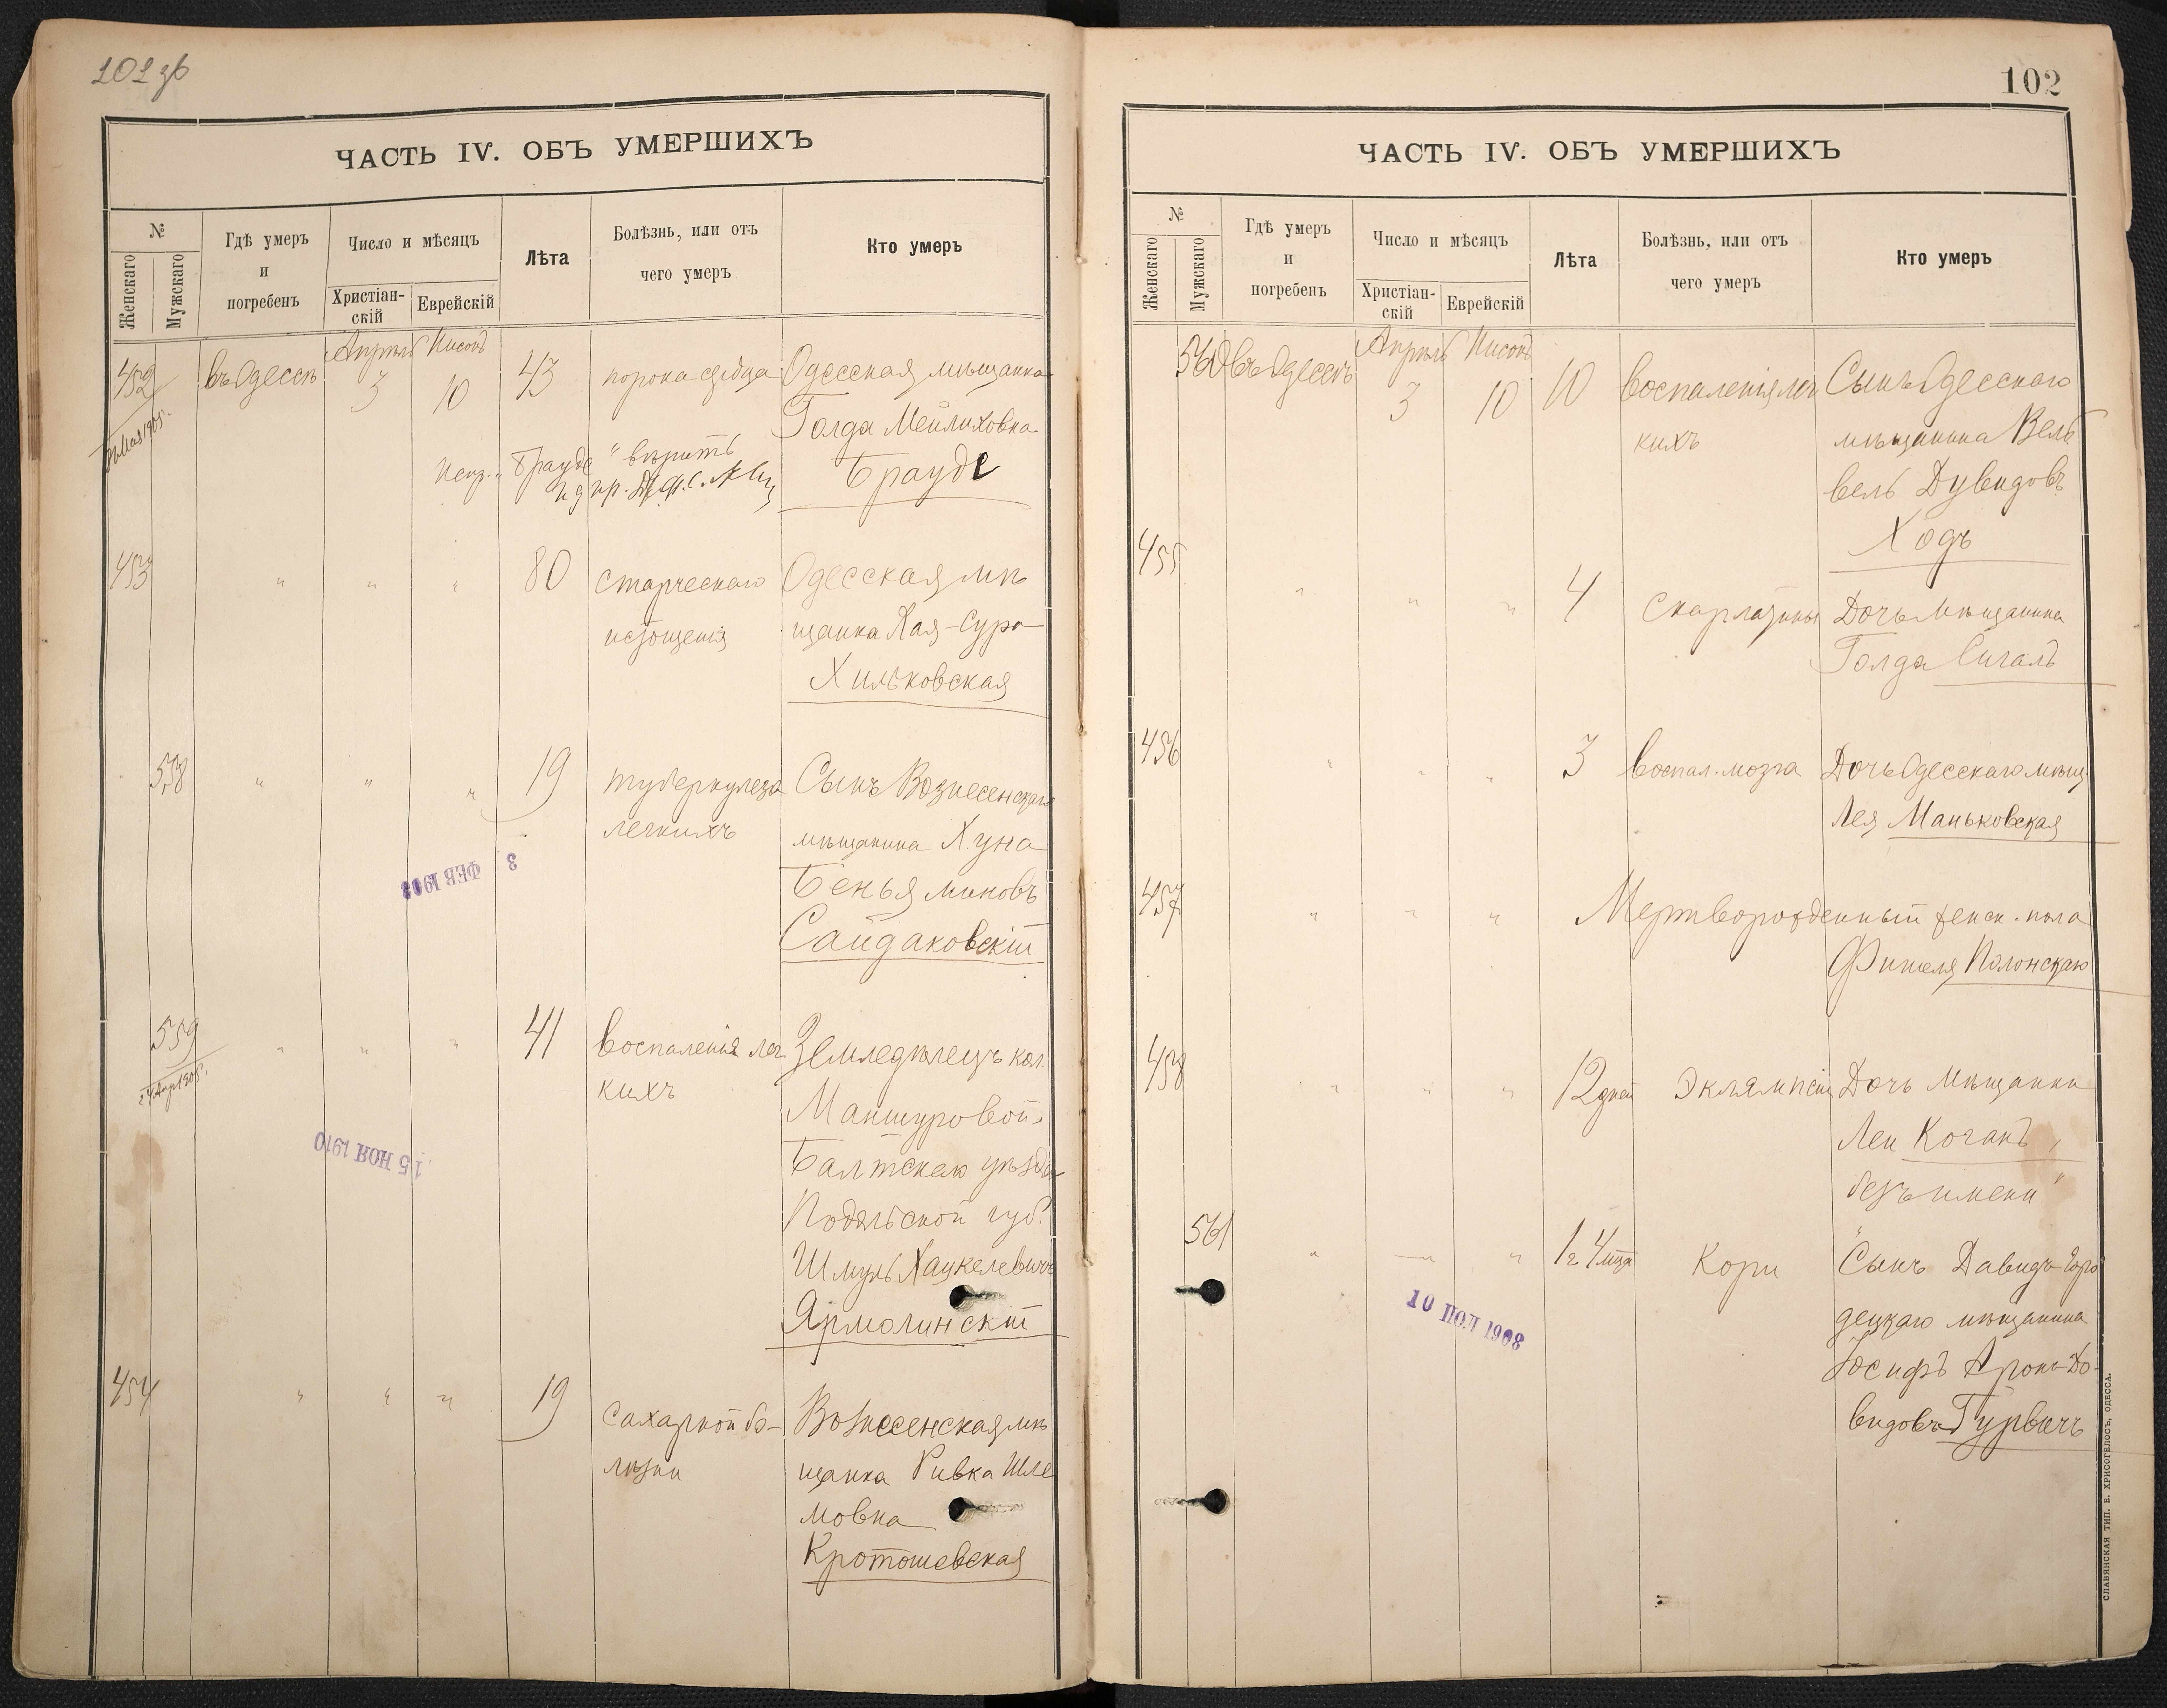 101 зв
ЧАСТЬ IV. ОБЪ УМЕРШИХЪ
№
Женскаго
Мужскаго
Гдѣ умеръ
и
погребенъ
Число и мѣсяцъ
Христіан-
скій
Еврейскій
Лѣта
Болѣзнь, или отъ
чего умеръ
Кто умеръ
Апрѣль Нисонъ
452 въ Одессѣ 3 10 43 порока сердца Одесская мѣщанка
Голда Мейлиховна
Брауде
Испр. "Брауде" вѣрить
453 " " " 80 старческаго Одесская мѣ
истощенія щанка Хая-Сура
Хильковская
558 " " " 19 туберкулеза Сынъ Вознесенскаго
легкихъ мѣщанина Хуна
Беньяминовъ
Сайдаковскій
3 ФЕВ 1903
559 " " " 41 воспаленія лег Земледѣлецъ кол.
кихъ Мантуровой,
Балтскаго уѣзда
Подольской губ.
Шмуль Хацкелевичъ
Ярмолинскій
24 Апр 1905г.
15 НОЯ 1910
454 " " " 19 сахарной бо- Вознесенская мѣ
лѣзни щанка Ривка Шле
мовна
Кротошевская
102
ЧАСТЬ IV. ОБЪ УМЕРШИХЪ
№
Женскаго
Мужскаго
Гдѣ умеръ
и
погребенъ
Число и мѣсяцъ
Христіан-
скій
Еврейскій
Лѣта
Болѣзнь, или отъ
чего умеръ
Кто умеръ
Апрѣль Нисонъ
560 въ Одессѣ 3 10 10 воспаленія лег Сынъ Одесскаго
кихъ мѣщанина Вель
вель Дувидовъ
Ходъ
455 " " " 4 Скарлатины Дочь мѣщанина
Голда Сигалъ
456 " " " 3 воспал. мозга Дочь Одесскаго мѣщ.
Лея Маньковская
457 " " " Мертворожденный женск. пола
Фишеля Полонскаго
458 " " " 12 дней Эклямпсіи Дочь Мѣщанки
Леи Коганъ,
"безъ имени"
561 " " " 1 г. 4 мца Кори Сынъ Давидъ-Горо
децкаго мѣщанина
Іосифъ Аронъ До-
видовъ Гурвичъ
10 ІЮЛ 1908
СЛАВЯНСКАЯ ТИП. Е. ХРИСОГЕЛОСЪ, ОДЕССА.